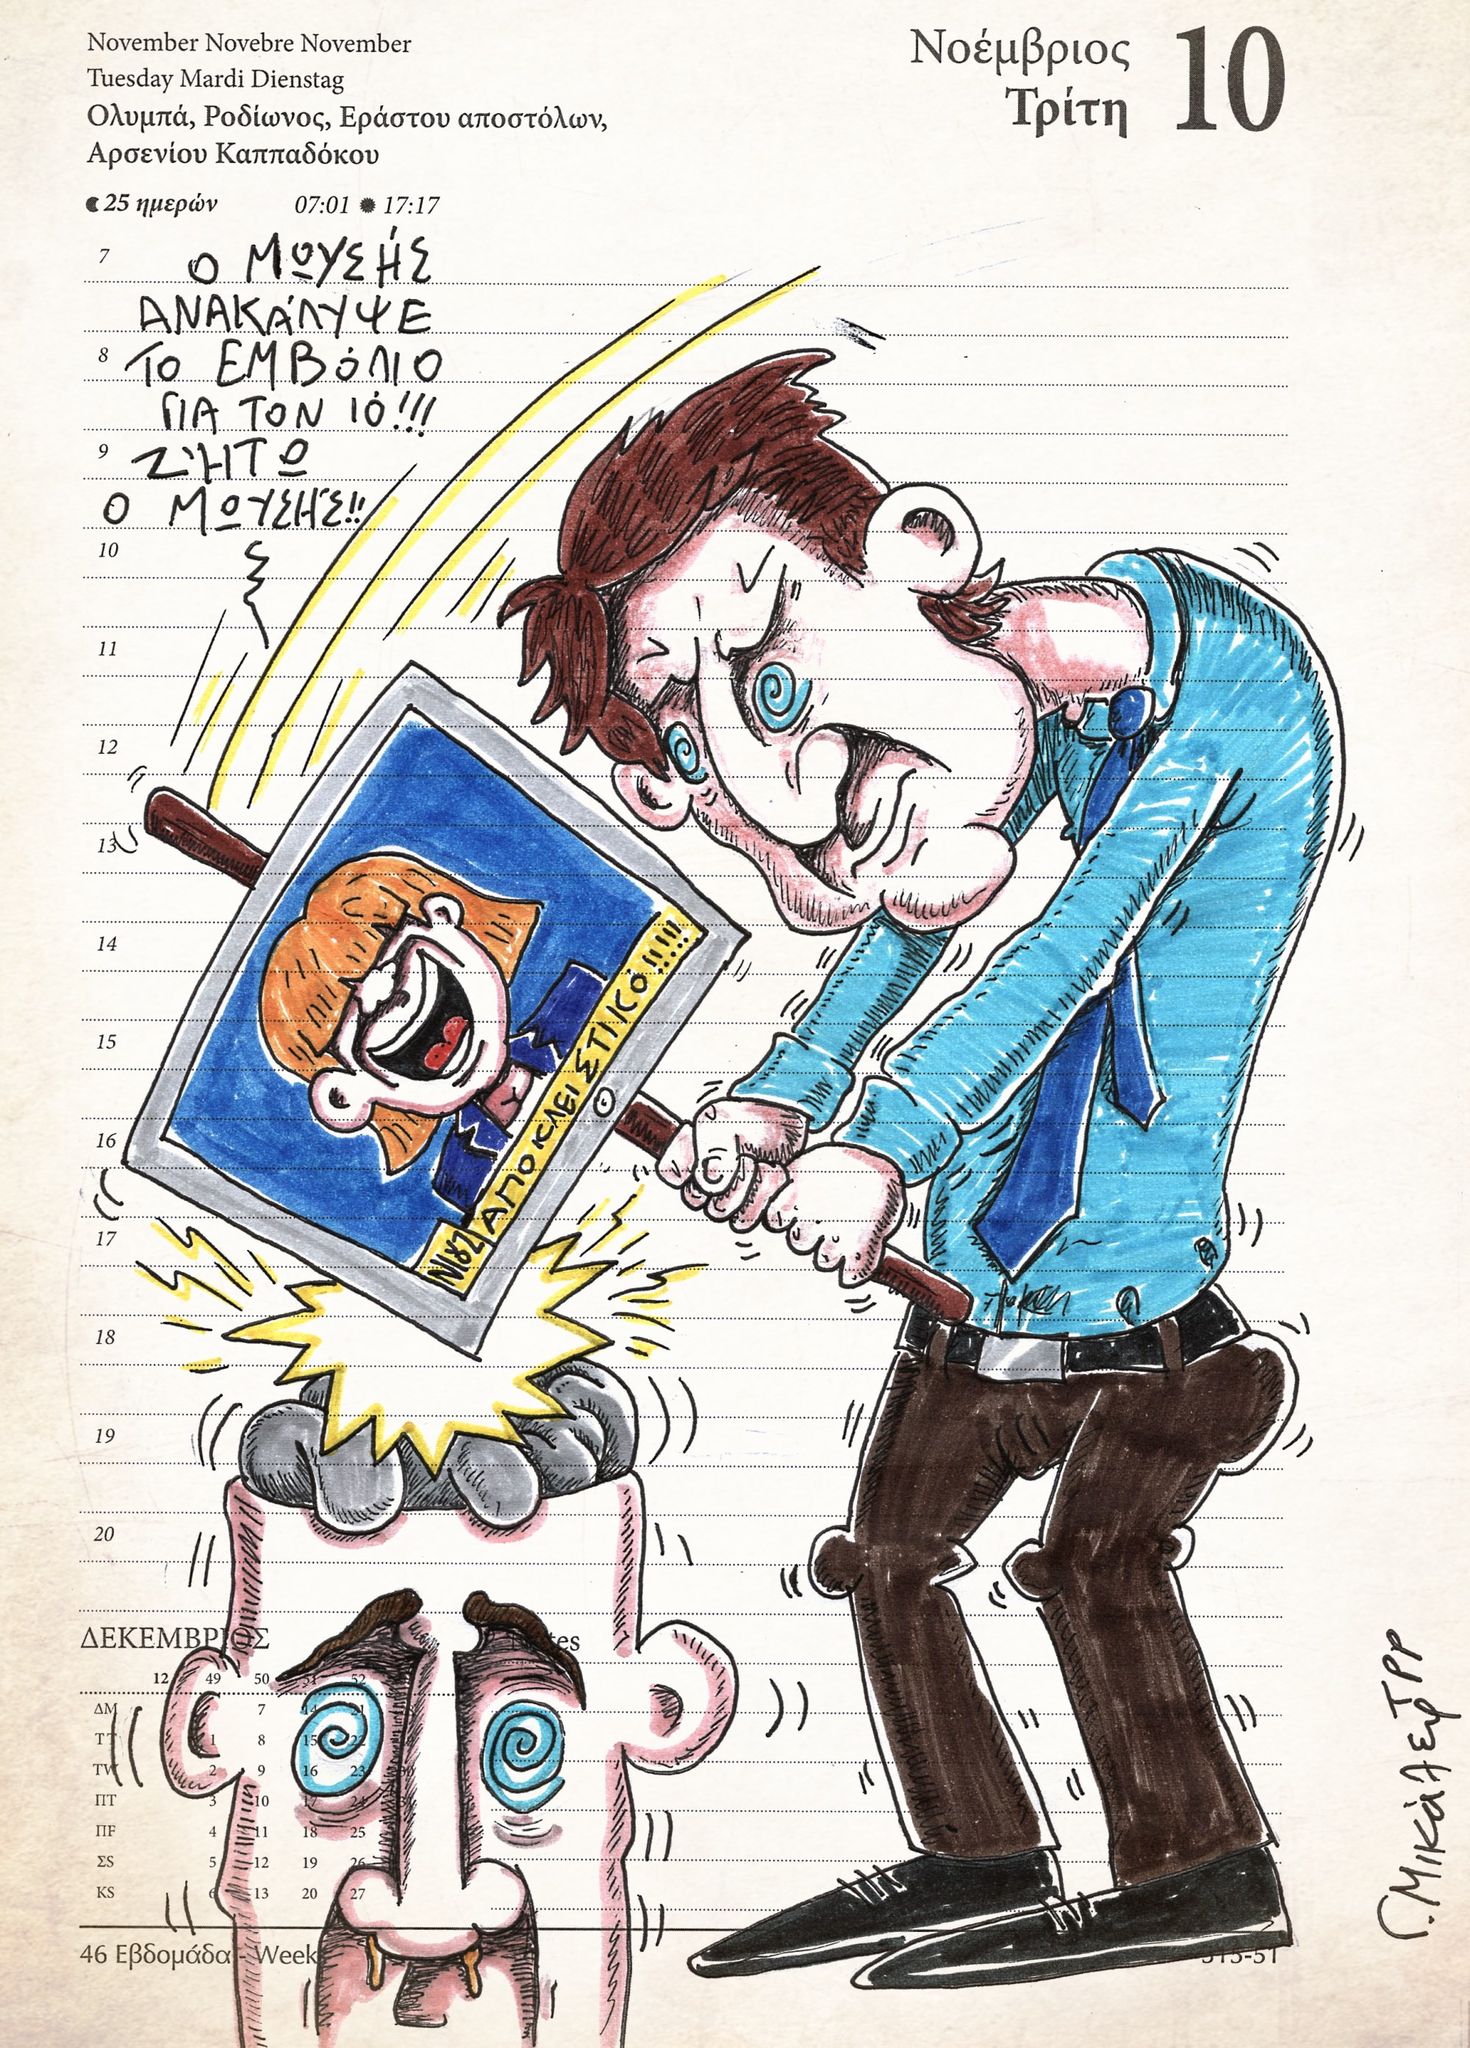 November Novebre November
Tuesday Mardi Dienstag
Ολυμπά, Ροδίωνος, Εράστου αποστόλων,
Αρσενίου Καππαδόκου
25 ημερών 07:01 17:17
Νοέμβριος
Τρίτη
10
Ο ΜΩΥΣΗΣ
ΑΝΑΚΑΛΥΨΕ
ΤΟ ΕΜΒΌΛΙΟ
ΓΙΑ ΤΟΝ ΙΌ!!!
ΖΉΤΩ
Ο ΜΩΥΣΗΣ!!
7
8
9
10
11
12
13
14
15
16
17
18
19
20
ΝΙΟΥΖ ΑΠΟΚΛΕΙΣΤΙΚΟ!!!!!
ΔΕΚΕΜΒΡΙΟΣ
12 49 50 51 52
ΔΜ 7 14 21
ΤΤ 1 8 15 22
TW 2 9 16 23 30
ΠΤ 3 10 17 24
ΠF 4 11 18 25
ΣS 5 12 19 26
KS 6 13 20 27
46 Εβδομάδα - Week
315-51
Γ. Μικάλεφ ΤΡΡ